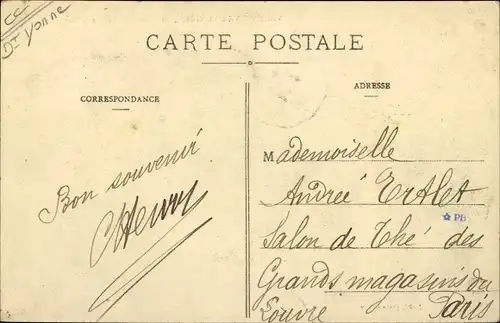 CC
Dt Yonne
CARTE POSTALE
CORRESPONDANCE
ADRESSE
Bon souvenir
Henry
Mademoiselle
Andreé Ertlet
Salon de Thé des
Grands magasins du
Louvre Paris
PB